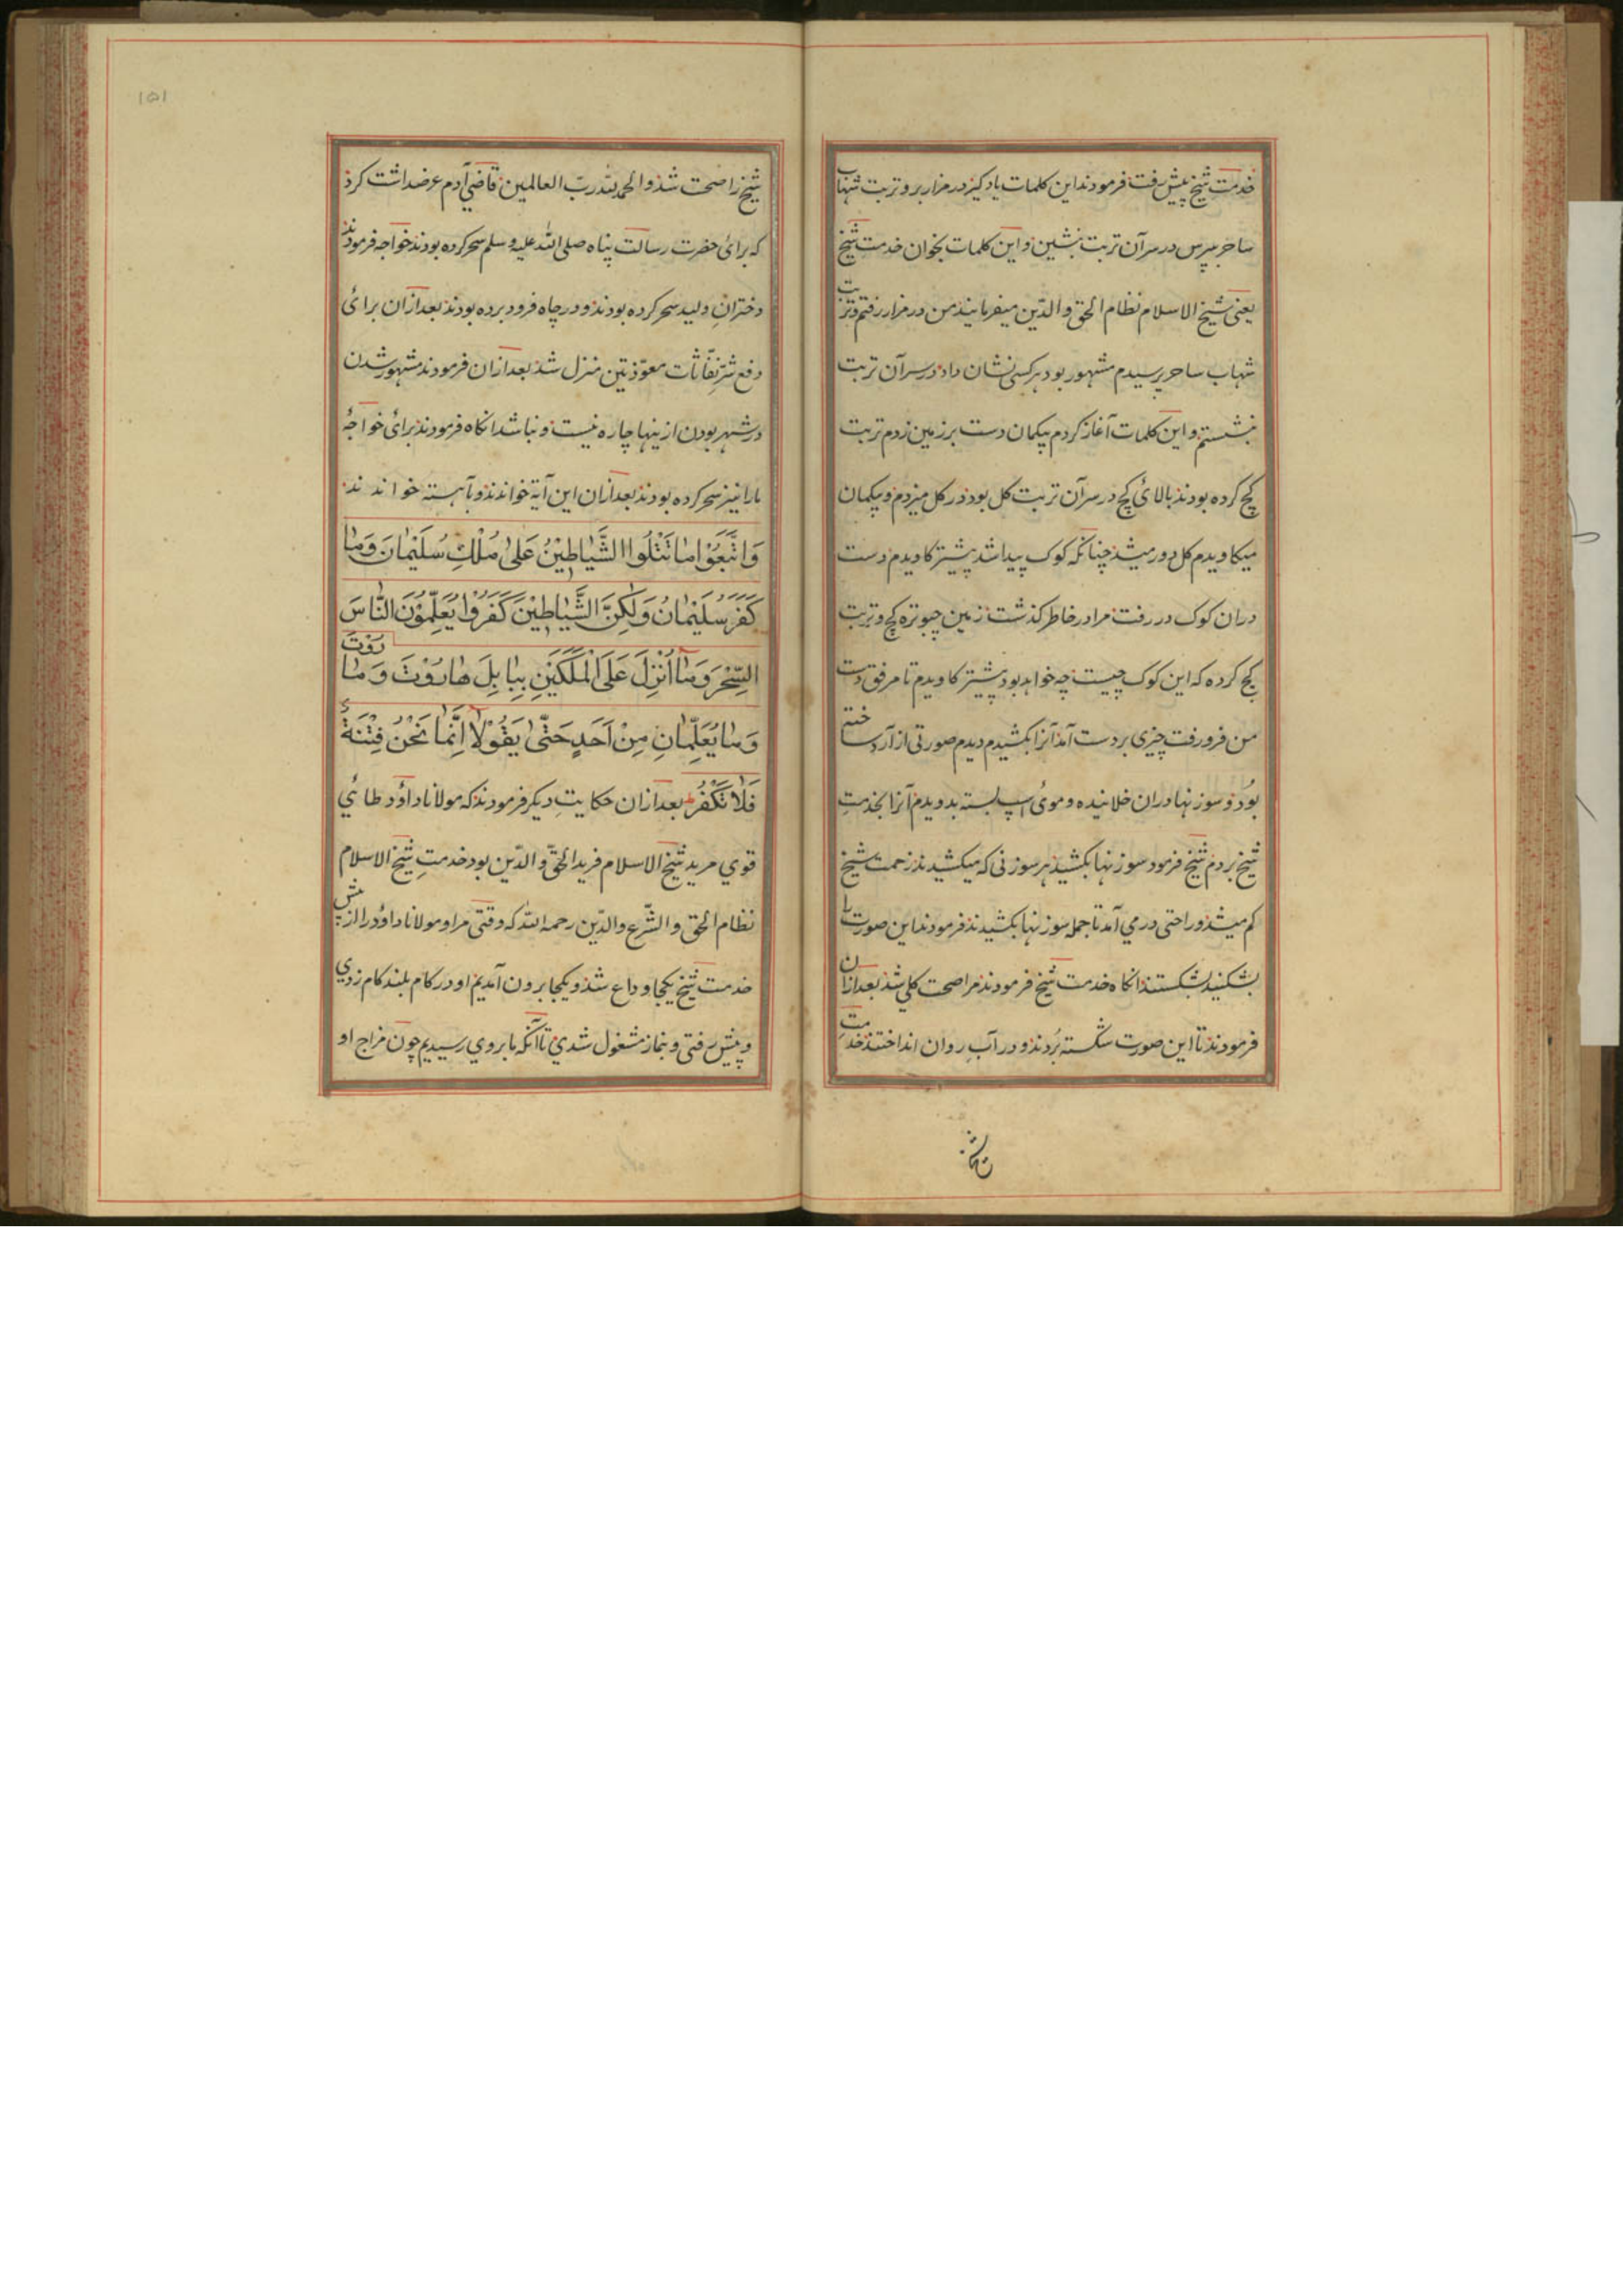 خدمت شیخ پیش رفت فرمودند این کلمات یاد گیر در مزار برو تربت شهاب
ساحر بپرس در سر آن تربت بنشین و این کلمات بخوان خدمت شیخ
یعنی شیخ الاسلام نظام الحق والدّین میفرمایند من در مزار رفتم و تربت
شهاب ساحر پرسیدم مشهور بود هر کسی نشان داد در سر آن تربت
بنشستم و این کلمات آغاز کردم پیکمان دست بر زمین زدم تربت
کچ کرده بودند بالائ کچ در سر آن تربت کل بود در کل میزدم و پیکمان
میکاویدم کل دور میشد چنانکه کوک پیدا شد پیشتر کاویدم دست
در ان کوک در رفت مرا در خاطر کذشت زمین چبوتره کچ و تربت
کچ کرده که این کوک چیست چه خواهد بود پیشتر کاویدم تا مرفق دست
من فرو رفت چیزی بر دست آمد آنرا بکشیدم دیدم صورتی از آرد ساخته
بود و سوزنها دران خلانیده و موئ اسپ بسته بدویدم آنرا بخدمتِ
شیخ بردم شیخ فرمود سوزنها بکشید هر سوزنی که میکشیدند زحمت شیخ
کم میشد و راحتی در می آمد تا جمله سوزنها بکشیدند فرمودند این صورت را
بشکنید بشکستند انکاه خدمت شیخ فرمودند مرا صحت کلی شد بعد ازان
فرمودند تا این صورت شکسته بُردند و در آبِ روان انداختند خدمتِ
شیخ را صحت شد والحمد للّه ربّ العالمین قاضی آدم عرضداشت کرد
که برائ حضرت رسالت پناه صلی اللّه علیه و سلم سحر کرده بودند خواجه فرمودند
دخترانِ ولید سحر کرده بودند و در چاه فرود برده بودند بعد ازان برائ
دفع شرّ نفّاثات معوّذتین منزل شد بعد ازان فرمودند مشهور شدن
در شهر بودن ازینها چاره نیست و نباشد انکاه فرمودند برائ خواجهٔ
ما را نیز سحر کرده بودند بعد ازان این آیة خواندند و بآهسته خواندند
وَاتَّبَعُوْا مَا تَتْلُوا الشَّیَاطِیْنُ عَلیٰ مُلْكِ سُلَیْمَانَ وَمَا
کَفَرَ سُلَیْمَانُ وَلٰکِنَّ الشَّیَاطِیْنَ کَفَرُوْا یُعَلِّمُوْنَ النَّاسَ
السِّحْرَ وَمَا اُنْزِلَ عَلَی الْمَلَکَیْنِ بِبَابِلَ هَارُوْتَ وَمَارُوْتَ
وَمَا یُعَلِّمَانِ مِنْ اَحَدٍ حَتّٰی یَقُوْلَا اِنَّمَا نَحْنُ فِتْنَةٌ
فَلَا تَکْفُرْ بعد ازان حکایتِ دیکر فرمودند که مولانا داؤد طائی
قوی مرید شیخ الاسلام فرید الحقّ والدّین بود خدمتِ شیخ الاسلام
نظام الحق والشّرع والدّین رحمه اللّه که وقتی مرا و مولانا داؤد را از پیش
خدمت شیخ یکجا وداع شد و یکجا برون آمدیم او در کام بلند کام زدی
و پیش رفتی و بنماز مشغول شدی تا آنکه ما بروی رسیدیم چون مزاج او